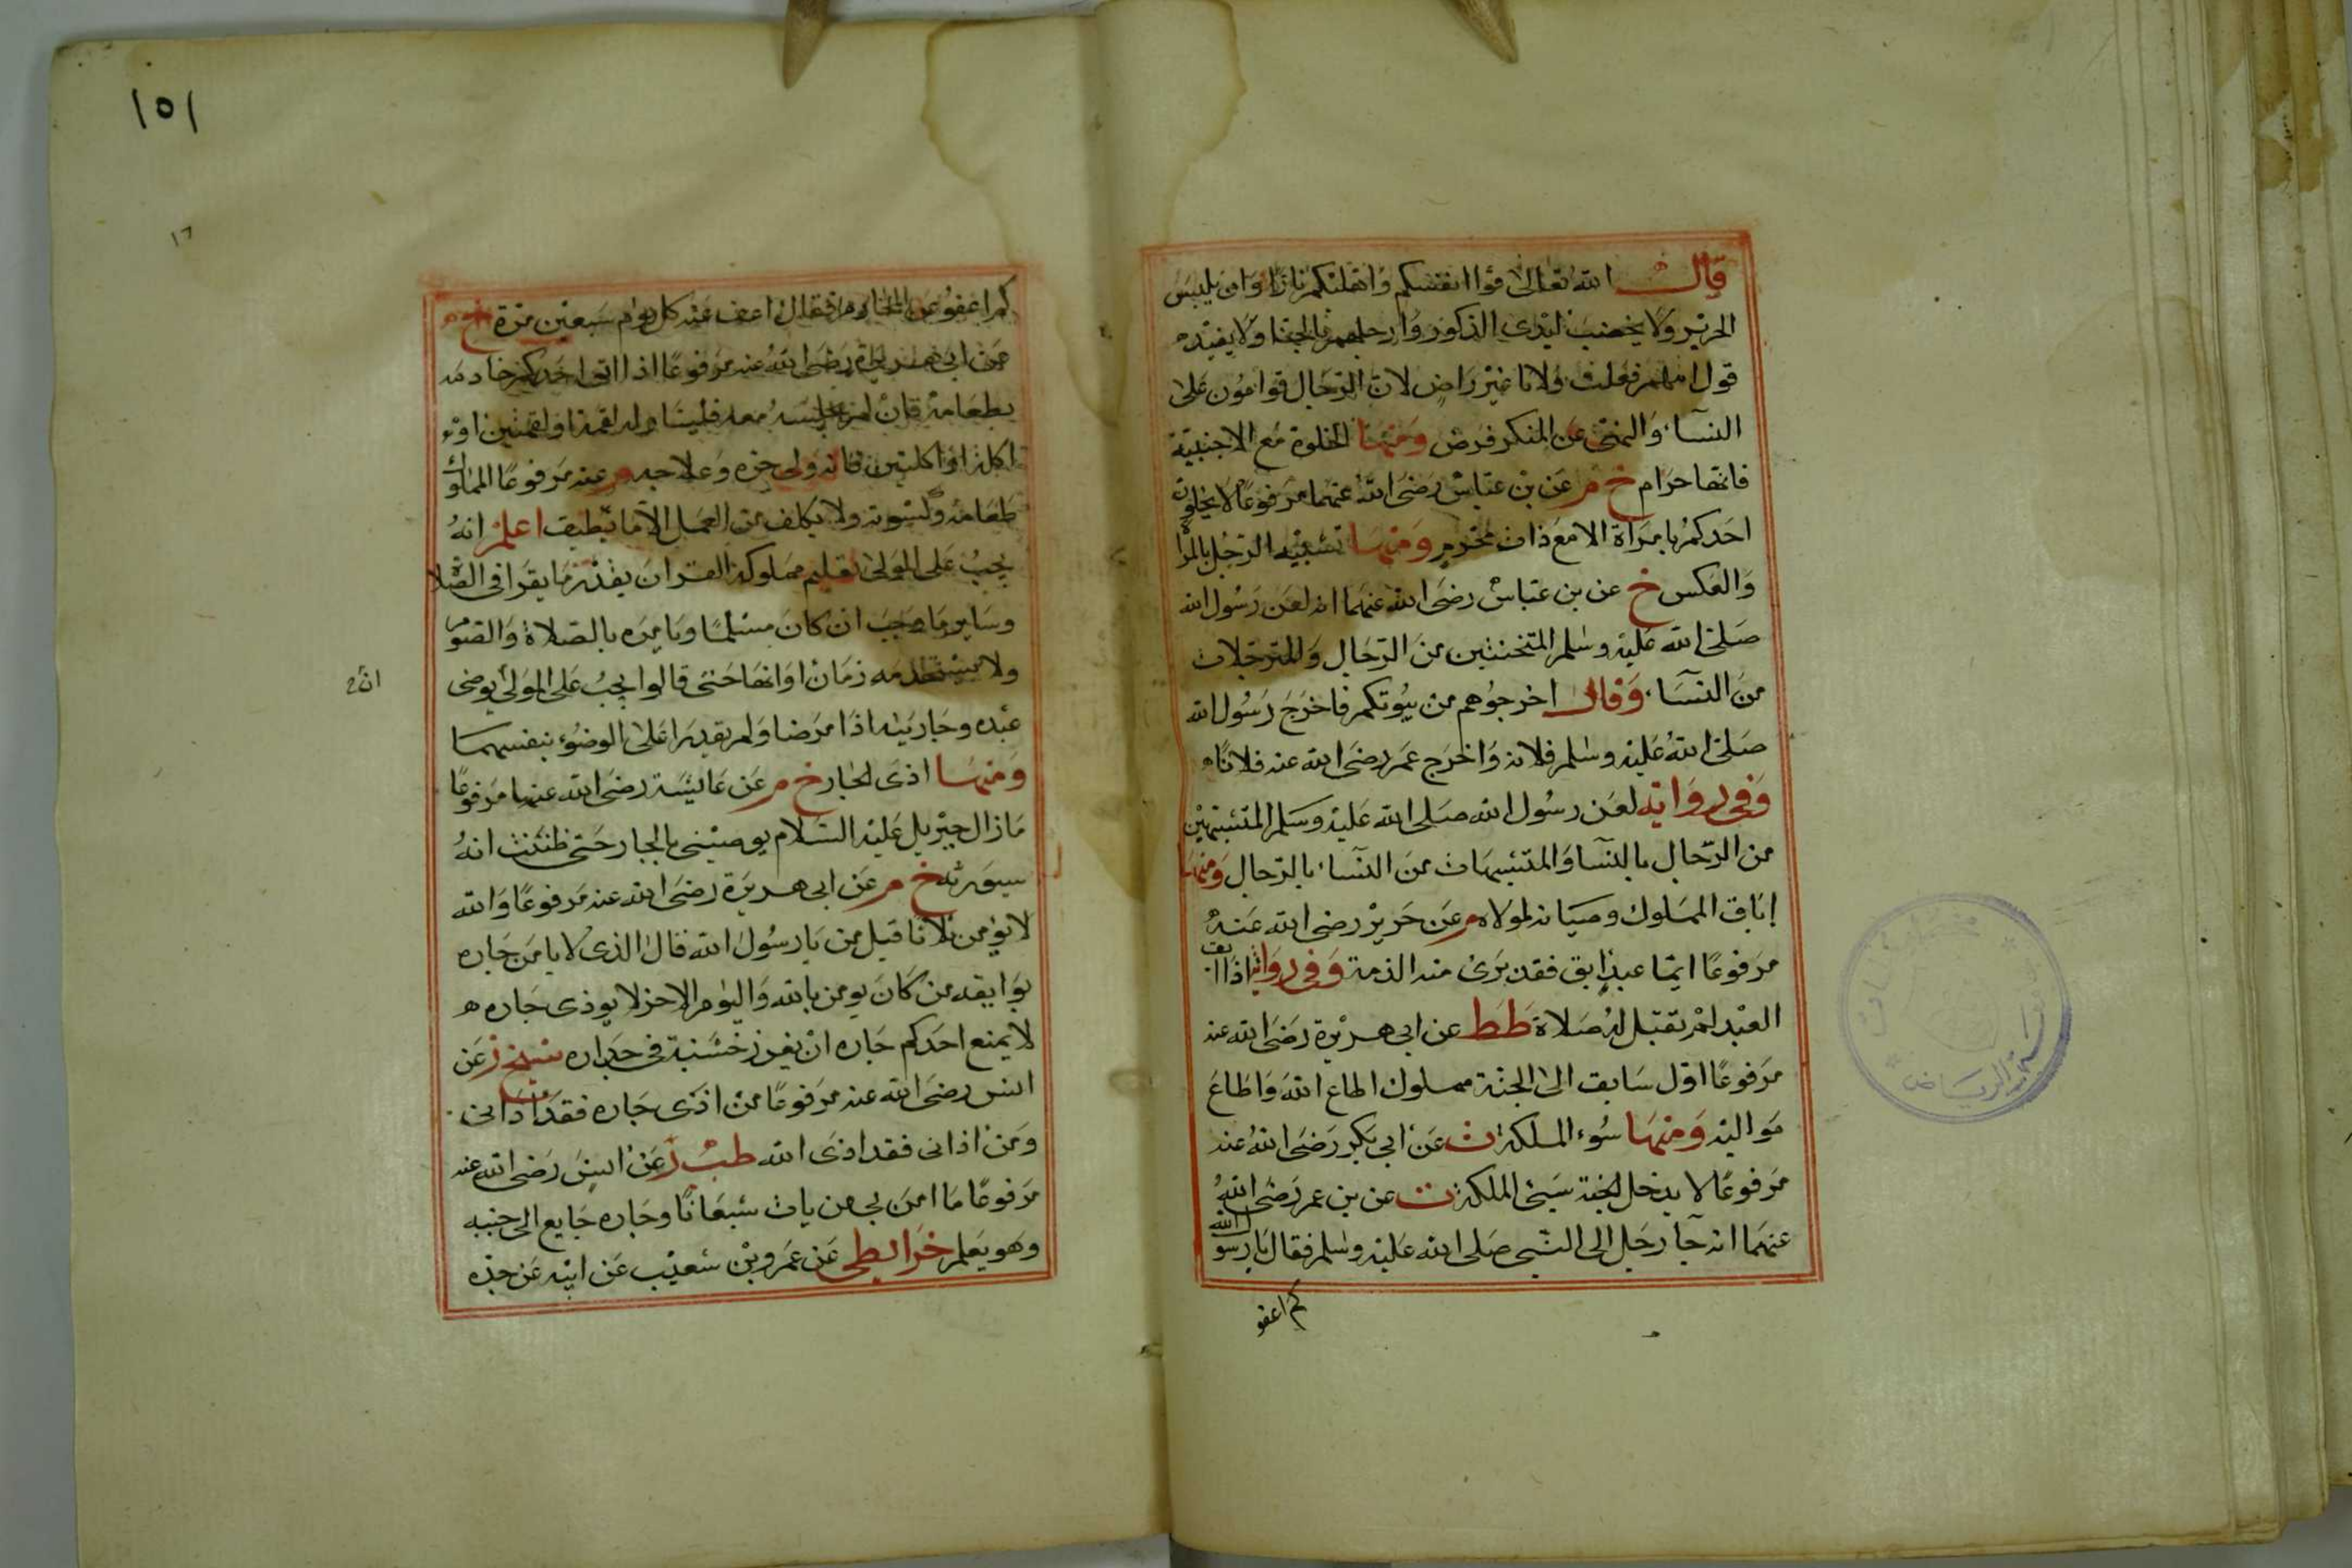 قال الله تعالى قوا انفسكم واهليكم نارا وان يلبس
الحرير ولا يخضب ايدي الذكور وارجلهم بالحنا ولا يفيده
قول امهم فعلت ولانا غير راض لان الرجال قوامون على
النسآء والنهى عن المنكر فرض ومنها الخلوة مع الاجنبية
فانها حرام خ م عن بن عباس رضى الله عنهما مرفوعا لا يخلون
احدكم بامراة الا مع ذات محرم ومنها تشبيه الرجل بالمراة
والعكس خ عن بن عباس رضى الله عنهما انه لعن رسول الله
صلى الله عليه وسلم المتخنثين من الرجال والمترجلات
من النسآء وقال اخرجوهم من بيوتكم فاخرج رسول الله
صلى الله عليه وسلم فلانه واخرج عمر رضى الله عنه فلانا
وفى رواية لعن رسول الله صلى الله عليه وسلم المتشبهين
من الرجال بالنسآ والمتشبهات من النسآء بالرجال ومنها
إباق المملوك وعصيانه لمولاه م عن جرير رضى الله عنه
مرفوعا ايما عبد ابق فقد برئ منه الذمة وفى رواية اذا ابق
العبد لم تقبل له صلاة طط عن ابى هريرة رضى الله عنه
مرفوعا اول سابق الى الجنة مملوك اطاع الله واطاع
مواليه ومنها سوء الملكة ت عن ابى بكر رضى الله عنه
مرفوعا لا يدخل الجنة سيئ الملكة ت عن بن عمر رضى الله
عنهما انه جآ رجل الى النبى صلى الله عليه وسلم فقال يا رسول الله
كم اعفو
١٥١
١٦
كم اعفو عن الخادم فقال اعف عنه كل يوم سبعين مرة خ م
عن ابى هريرة رضى الله عنه مرفوعا اذا اتى احدكم خادمه
بطعامه فان لم يجلسه معه فليناوله لقمة او لقمتين او
اكلة او اكلتين فانه ولى حره وعلاجه م عنه مرفوعا للمملوك
طعامه وكسوته ولا يكلف من العمل الا ما يطيق اعلم انه
يجب على المولى تعليم مملوكه القران بقدر ما يقرا فى الصلاة
وساير ما يجب ان كان مسلما ويامره بالصلاة والصوم
ولا يستخدمه زمان اوانها حتى قالوا يجب على المولى ان يوضى
عبده وجاريته اذا مرضا ولم يقدرا على الوضوء بنفسهما
ومنها اذى الجار خ م عن عايشة رضى الله عنها مرفوعا
ما زال جبريل عليه السلام يوصينى بالجار حتى ظننت انه
سيورثه خ م عن ابى هريرة رضى الله عنه مرفوعا والله
لا يؤمن ثلاثا قيل من يا رسول الله قال الذى لا يامن جاره
بوايقه من كان يومن بالله واليوم الاخر لا يوذى جاره
لا يمنع احدكم جاره ان يغرز خشبة فى جداره شيخ ز عن
انس رضى الله عنه مرفوعا من اذى جاره فقد اذانى
ومن اذانى فقد اذى الله طب ز عن انس رضى الله عنه
مرفوعا ما امن بى من بات شبعانا وجاره جايع الى جنبه
وهو يعلم خرايطى عن عمرو بن شعيب عن ابيه عن جده